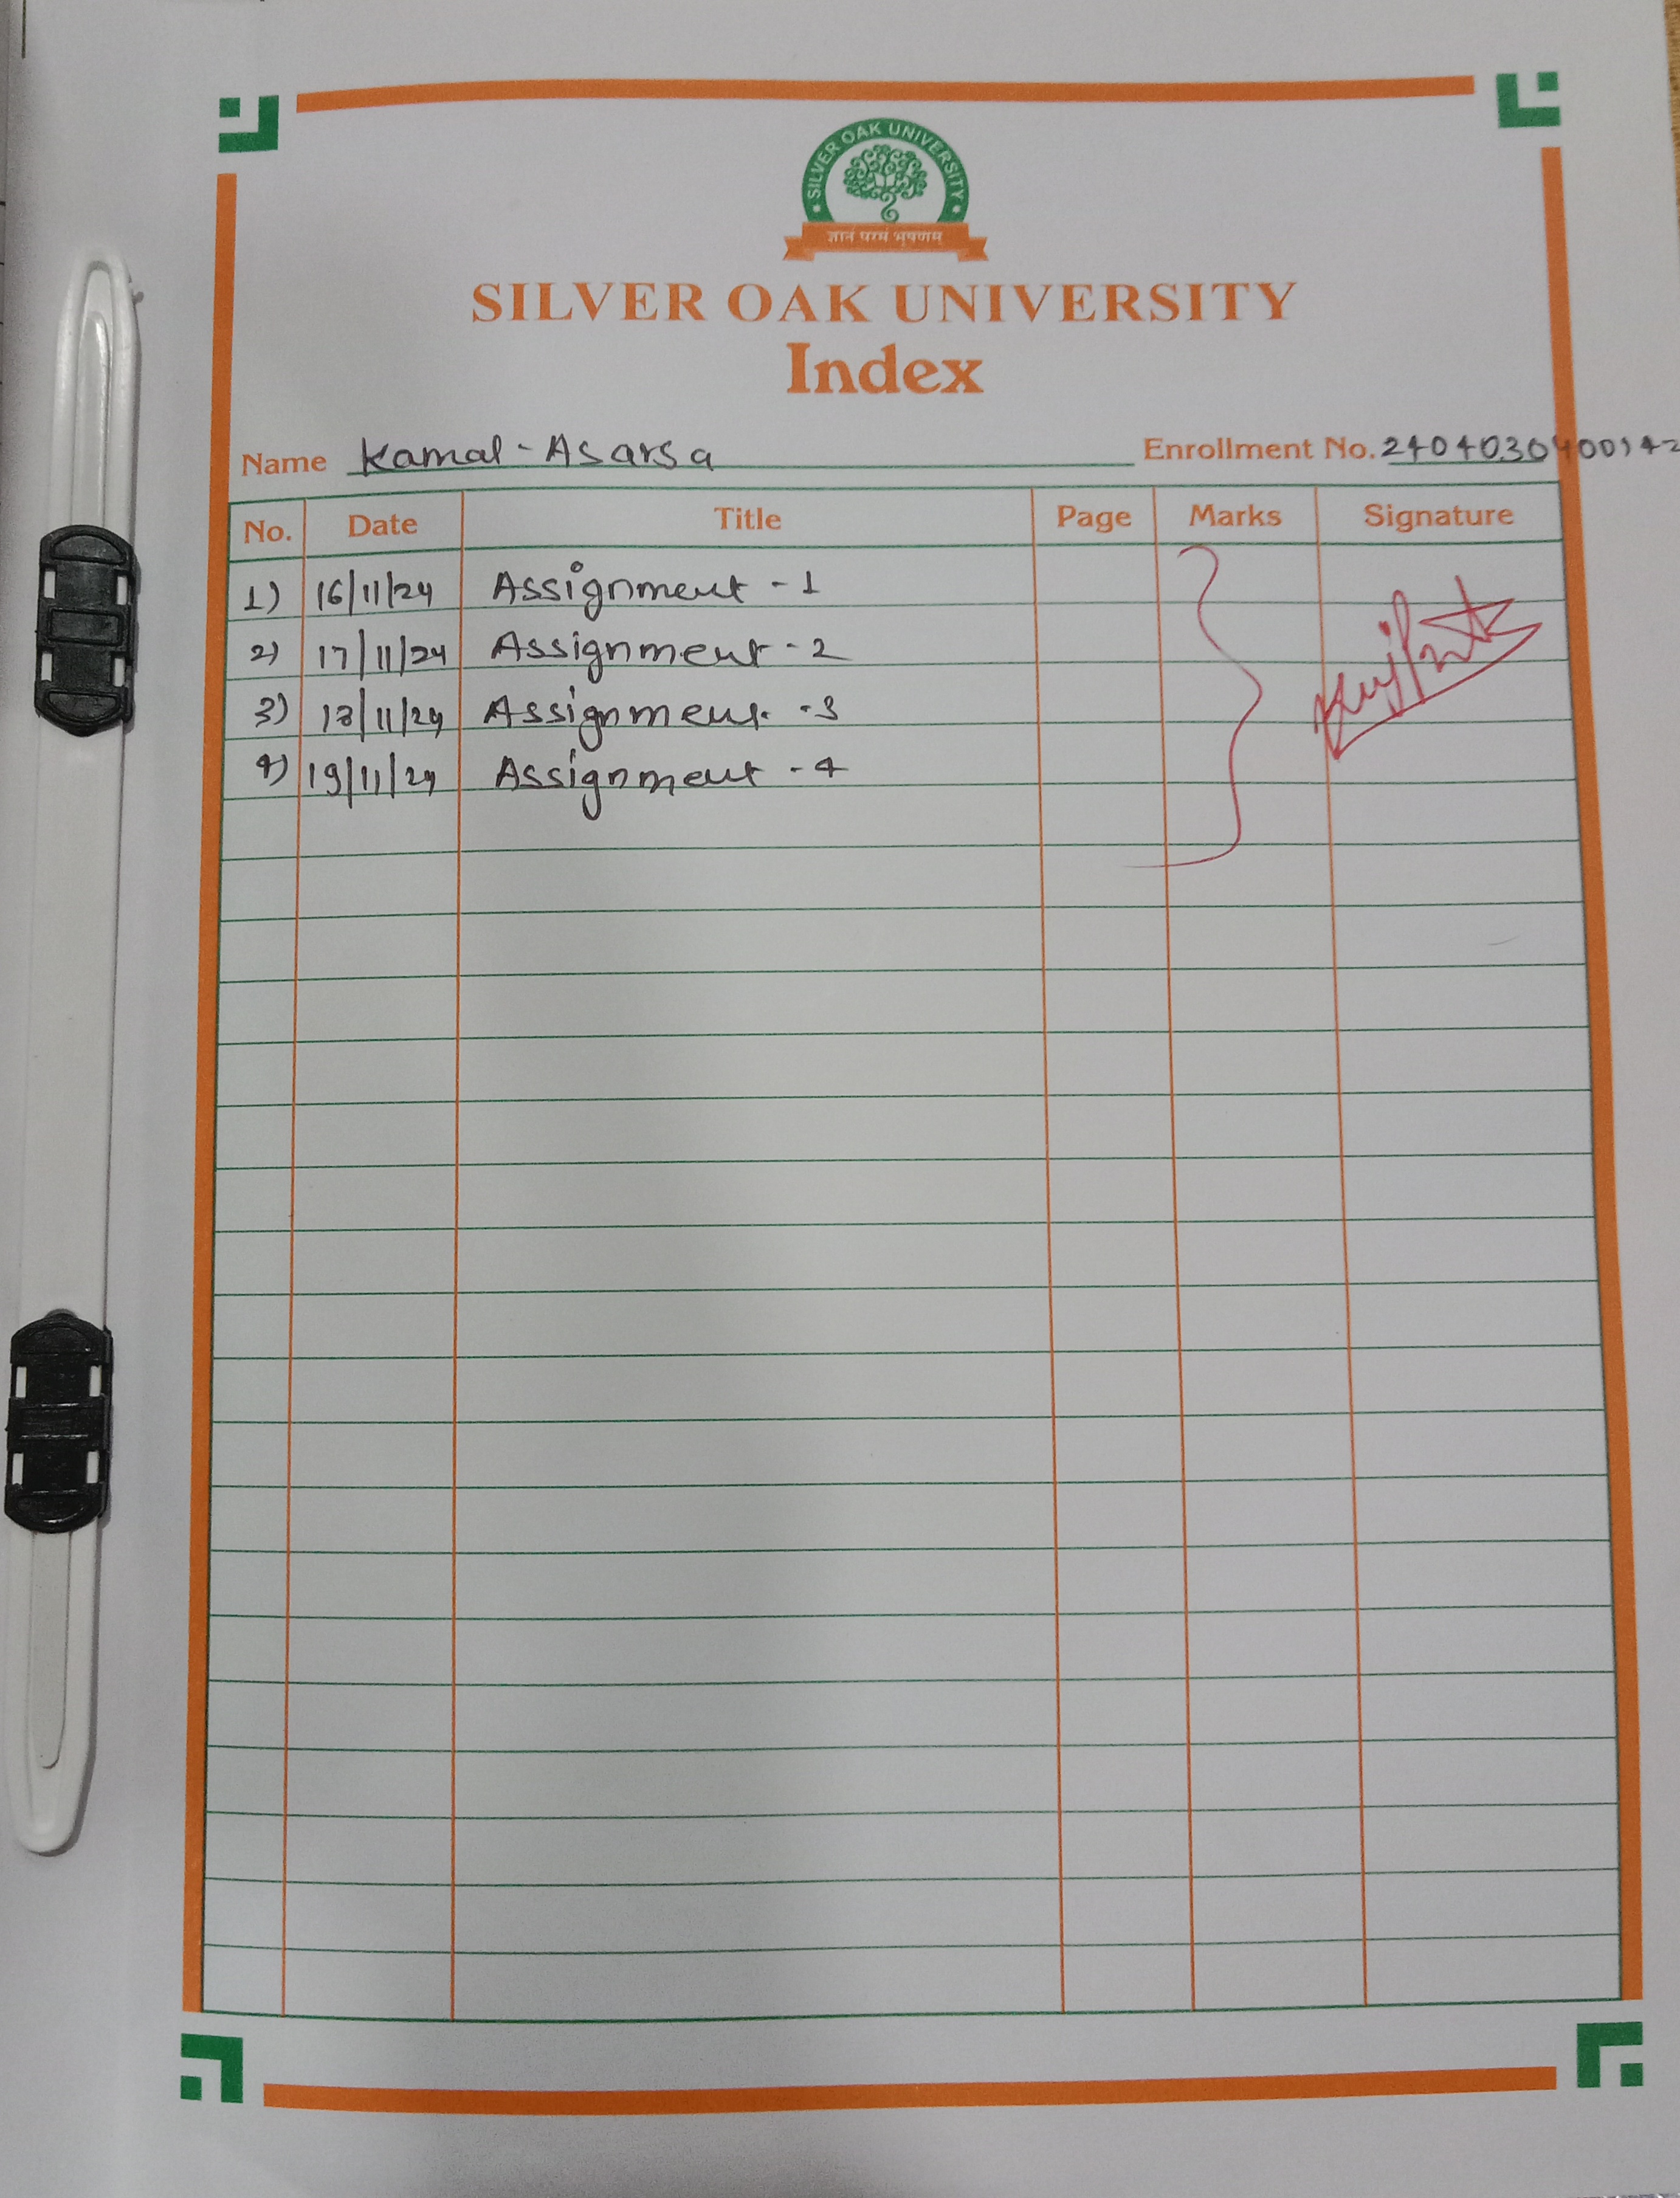 SILVER OAK UNIVERSITY
ज्ञानं परमं भूषणम्
SILVER OAK UNIVERSITY
Index
Name Kamal-Asarsa Enrollment No. 2404030400142
No. Date Title Page Marks Signature
1) 16/11/24 Assignment - 1
2) 17/11/24 Assignment - 2
3) 18/11/24 Assignment - 3
4) 19/11/24 Assignment - 4